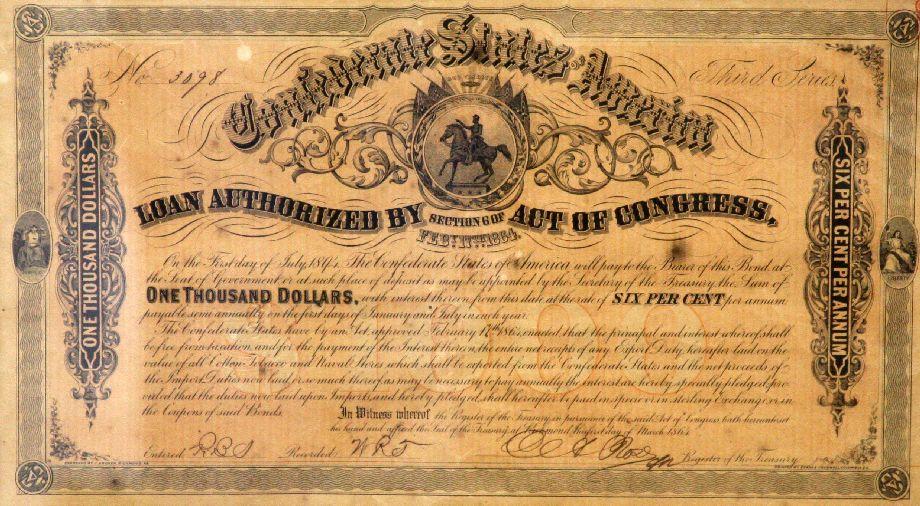 Confederate States America
No 3098
Third Series
LOAN AUTHORIZED BY SECTION 6 OF ACT OF CONGRESS,
FEBY. 17TH. 1864.
ONE THOUSAND DOLLARS
SIX PER CENT PER ANNUM
On the First day of July, The Confederate States of America will pay to the Bearer of this Bond, at
the Seat of Government or at such place of deposit as may be appointed by the Secretary of the Treasury the Sum of
ONE THOUSAND DOLLARS, with interest thereon, from this date at the rate of SIX PER CENT per annum
payable semi annually on the first days of January and July in each year.
The Confederate States have by an Act approved February 17th enacted that the principal and interest whereof shall
be free from taxation and for the payment of the Interest thereon, the entire net receipts of any Export Duty hereafter laid on the
value of all Cotton Tobacco and Naval Stores which shall be exported from the Confederate States and the net proceeds of
the Import Duties now laid or so much thereof as may be necessary to pay annually the interest are hereby specially pledged: provi
ded that the duties now laid upon Imports and hereby pledged, shall hereafter be paid in specie or in sterling Exchange or in
the Coupons of said Bonds.
In Witness whereof the Register of the Treasury in pursuance of the said Act of Congress hath hereunto set
his hand and affixed the Seal of the Treasury, at Richmond this first day of March
Entered
Recorded
Register of the Treasury